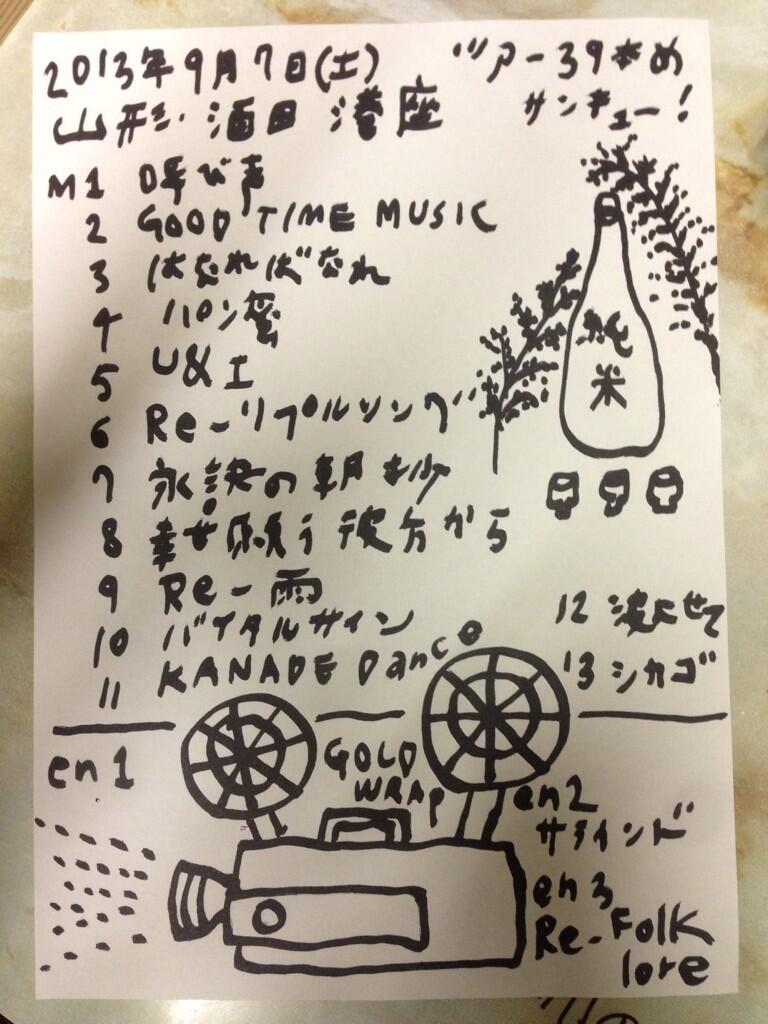 2013年9月7日(土)
ツアー39本め
山形・酒田 港座
サンキュー!
M1 呼び声
2 GOOD TIME MUSIC
3 はなればなれ
4 ハロン湾
5 U&I
6 Re-リプルソング
7 永訣の朝抄
8 幸せ願う彼方から
9 Re-雨
10 バイタルサイン
11 KANADE Dance
12 波よせて
13 シカゴ
純米
en1 GOLD WRAP
en2 サラインド
en3 Re-Folklore